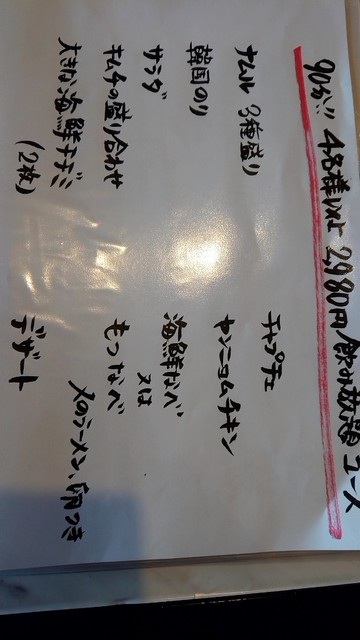 90分!! 4名様以上 2,980円 飲み放題コース
ナムル 3種盛り
韓国のり
サラダ
キムチの盛り合わせ
大きな海鮮チヂミ
(2枚)
チャプチェ
ヤンニョムチキン
海鮮なべ
又は
もつなべ
〆のラーメン、卵つき
デザート